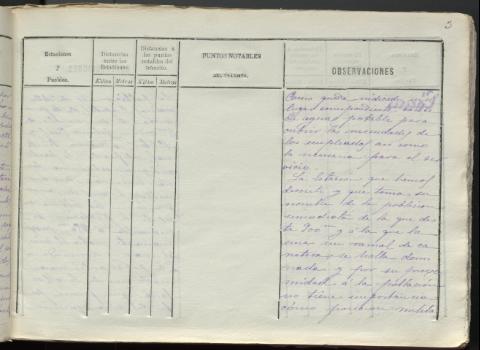 3
Estaciones
y
Pueblos.
Distancias
entre las
Estaciones
Kilóms
Metros
Distancias á
los puntos
notables del
tránsito.
Kilóms
Metros
PUNTOS NOTABLES
DEL TRÁNSITO.
OBSERVACIONES
Como queda indicado
lugar correspondiente
agua potable para
cubrir las necesidades de
los empleados así como
la necesaria para el ser
vicio
La Estación que hemos
descrito y que toma su
nombre de la población
inmediata de la que dis
ta 900 m y a la que la
une un ramal de ca
rretera, se halla domi
nada y por su proxi
midad á la población
no tiene importancia
como posición milita